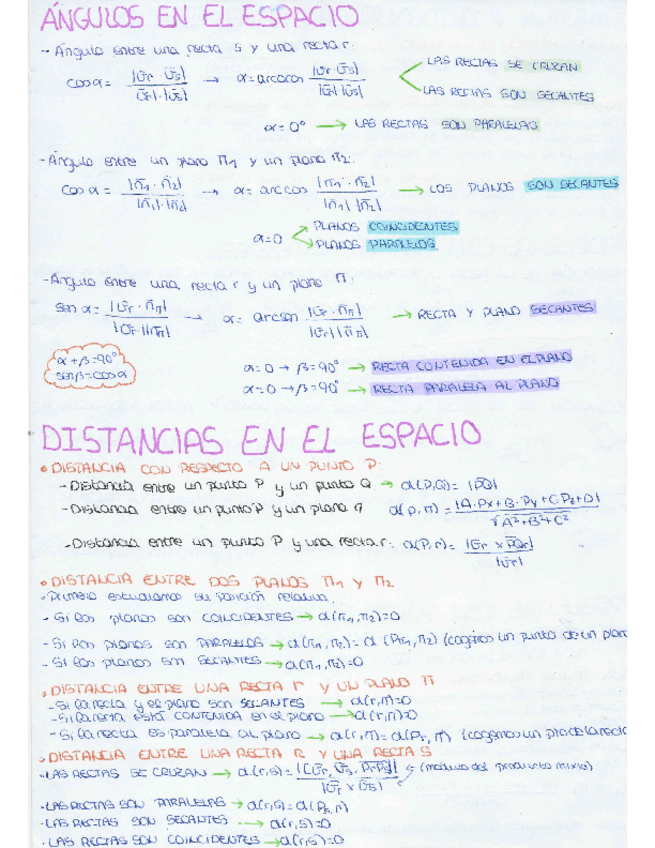 ÁNGULOS EN EL ESPACIO
- Ángulo entre una recta s y una recta r
cos α = |ūr · ūs| / |ūr|·|ūs| → α = arccos |ūr · ūs| / |ūr|·|ūs|
LAS RECTAS SE CRUZAN
LAS RECTAS SON SECANTES
α = 0° → LAS RECTAS SON PARALELAS
- Ángulo entre un plano π1 y un plano π2:
cos α = |n̄1 · n̄2| / |n̄1|·|n̄2| → α = arccos |n̄1 · n̄2| / |n̄1| |n̄2| → LOS PLANOS SON SECANTES
α = 0
PLANOS COINCIDENTES
PLANOS PARALELOS
- Ángulo entre una recta r y un plano π:
sen α = |ūr · n̄π| / |ūr||n̄π| → α = arcsen |ūr · n̄π| / |ūr||n̄π| → RECTA Y PLANO SECANTES
α + β = 90°
sen β = cos α
α = 0 → β = 90° → RECTA CONTENIDA EN EL PLANO
α = 0 → β = 90° → RECTA PARALELA AL PLANO
DISTANCIAS EN EL ESPACIO
• DISTANCIA CON RESPECTO A UN PUNTO P:
- Distancia entre un punto P y un punto Q → d(P,Q) = |P̄Q̄|
- Distancia entre un punto P y un plano π d(P,π) = |A·Px+B·Py+C·Pz+D| / √A²+B²+C²
- Distancia entre un punto P y una recta r: d(P,r) = |ūr × P̄Q̄r| / |ūr|
• DISTANCIA ENTRE DOS PLANOS π1 y π2
- Primero estudiamos su posición relativa.
- Si los planos son COINCIDENTES → d(π1,π2)=0
- Si los planos son PARALELOS → d(π1,π2) = d(Pπ1,π2) (cogemos un punto de un plan
- Si los planos son SECANTES → d(π1,π2)=0
• DISTANCIA ENTRE UNA RECTA r Y UN PLANO π
- Si la recta y el plano son SECANTES → d(r,π)=0
- Si la recta está CONTENIDA en el plano → d(r,π)=0
- Si la recta es paralela al plano → d(r,π) = d(Pr,π) (cogemos un pto de la recta
• DISTANCIA ENTRE UNA RECTA R Y UNA RECTA S
• LAS RECTAS SE CRUZAN → d(r,s) = |[ūr, ūs, PrPs]| / |ūr × ūs| (módulo del producto mixto)
• LAS RECTAS SON PARALELAS → d(r,s) = d(Ps,r)
• LAS RECTAS SON SECANTES → d(r,s)=0
• LAS RECTAS SON COINCIDENTES → d(r,s)=0